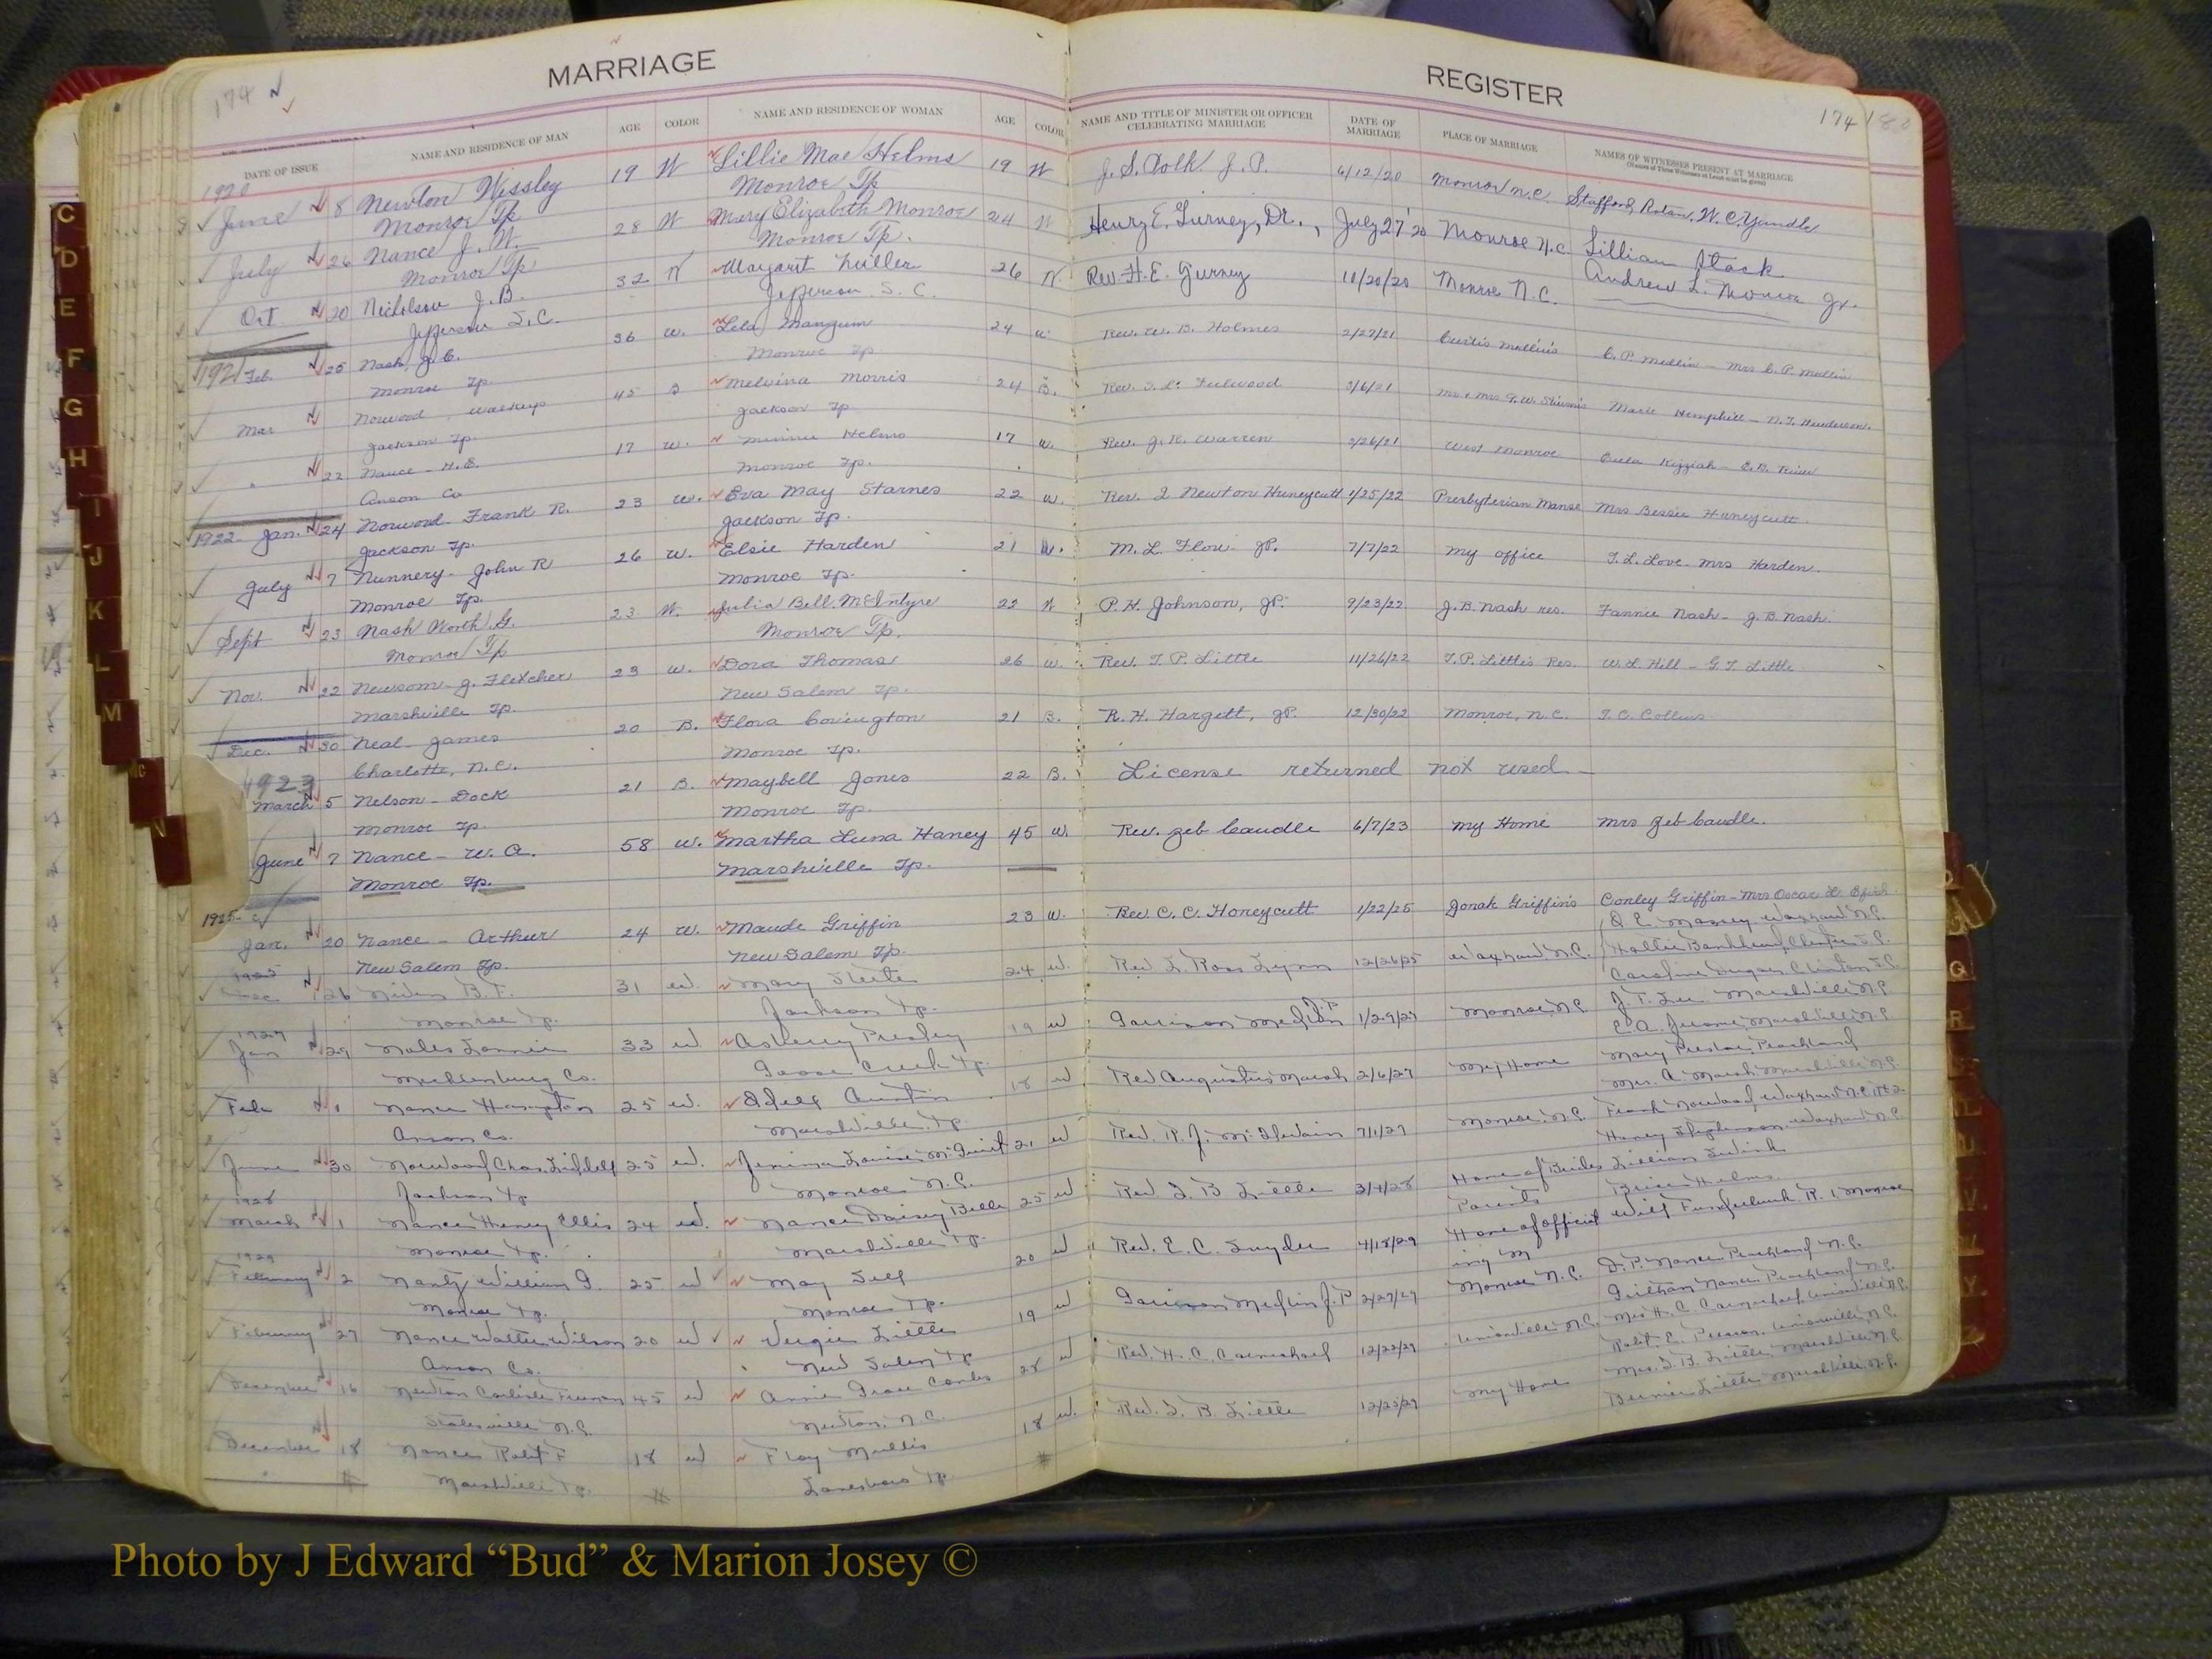 MARRIAGE REGISTER
174
174
DATE OF ISSUE NAME AND RESIDENCE OF MAN AGE COLOR NAME AND RESIDENCE OF WOMAN AGE COLOR NAME AND TITLE OF MINISTER OR OFFICER CELEBRATING MARRIAGE DATE OF MARRIAGE PLACE OF MARRIAGE NAMES OF WITNESSES PRESENT AT MARRIAGE
1920
June 8 Newton Wissley 19 W Lillie Mae Helms 19 W J. S. Polk J. P. 6/12/20 Monroe N.C. W. C. Yandle
Monroe Tp Monroe Tp
July 26 Nance J. W. 28 W Mary Elizabeth Monroe 24 W Henry E. Gurney, Dr., July 27 '20 Monroe N.C. Lillian Stack
Monroe Tp Monroe Tp. Andrew L. Monroe Jr.
Oct 20 Nicholson J. B. 32 W Margaret Miller 26 W. Rev. H. E. Gurney 10/20/20 Monroe N.C.
Jefferson S.C. Jefferson S.C.
1921 Feb. 25 Nash, J. C. 36 w. Lela Mangum 24 w Rev. W. B. Holmes 2/27/21 Curtis Medlin's C. P. Medlin - Mrs C. P. Medlin
Monroe Tp. Monroe Tp
Mar Norwood 45 B Melvina Morris 24 B. Rev. 3/6/21 Marie Hemphill - Henderson.
Jackson Tp. Jackson Tp
" 22 Nance - H. E. 17 w. Minnie Helms 17 w. Rev. J. R. Warren 3/26/21 West Monroe Kizziah
Anson Co Monroe Tp.
1922 Jan. 24 Norwood Frank R. 23 w. Eva May Starnes 22 w. Rev. J Newton Huneycutt 1/25/22 Presbyterian Manse Mrs Bessie Huneycutt
Jackson Tp. Jackson Tp.
July 7 Nunnery - John R 26 w. Elsie Harden 21 w. M. L. Flow JP. 7/7/22 my office T. L. Love - Mrs Harden.
Monroe Tp. Monroe Tp.
Sept 23 Nash Worth G. 23 W. Julia Bell McEntyre 22 W P. H. Johnson, JP. 9/23/22 J. B. Nash res. Fannie Nash - J. B. Nash.
Monroe Tp Monroe Tp.
Nov. 22 Newsom - J. Fletcher 23 w. Dora Thomas 26 w. Rev. T. P. Little 11/26/22 T. P. Little's Res. W. L Hill - G. T. Little
Marshville Tp. New Salem Tp.
Dec. 30 Neal - James 20 B. Flora Covington 21 B. R. H. Hargett, JP. 12/30/22 Monroe, N.C. T. C. Collins
Charlotte, N.C. Monroe Tp.
1923
March 5 Nelson - Dock 21 B. Maybell Jones 22 B. License returned not used
Monroe Tp. Monroe Tp.
June 7 Nance - W. A. 58 w. Martha Luna Haney 45 w. Rev. Zeb Caudle 6/7/23 my Home Mrs Zeb Caudle.
Monroe Tp. Marshville Tp.
1925
Jan. 20 Nance - Arthur 24 w. Maude Griffin 23 w. Rev. C. C. Honeycutt 1/22/25 Jonah Griffin's Conley Griffin - Mrs Oscar L.
New Salem Tp. New Salem Tp. Massey Waxhaw N.C.
1925
Dec 26 Niven B. T. 31 w. Mary Steele 24 w. Rev L. Ross Lynn 12/26/25 Waxhaw N.C. Hallie Bankhead, Chester S.C.
Monroe Tp. Jackson Tp. Caroline Clinton S.C.
1927
Jan 29 Lonnie 33 w. Presley 19 w Garrison Medlin J.P 1/29/27 Monroe N.C. J. T. Lee Marshville N.C.
Mecklenburg Co. Goose Creek Tp. E. A. Jerome, Marshville N.C.
Feb 1 Nance Hampton 25 w. Odell Austin 18 w Rev Augustus Marsh 2/6/27 My Home Mary Peachland
Anson Co. Marshville Tp. Mrs. A. Marsh, Marshville N.C.
June 30 Norwood Chas. Liddell 25 w. Jemima Louise 21 w Rev. R. J. McIlwain 7/1/27 Monroe N.C. Frank Norwood, Waxhaw N.C.
Jackson Tp Monroe N.C. Stephenson, Waxhaw N.C.
1928
March 1 Nance Henry Ellis 24 w. Nance Daisy Belle 25 w Rev. J. B Little 3/4/28 Home of Brides Parents Lillian
Monroe Tp. Marshville Tp. Brice Helms.
1929
February 2 Nantz William G. 25 w May Self 20 w Rev. E. C. Snyder 4/18/29 Home of officiating M Will Funderburk R. 1, Monroe
Monroe Tp. Monroe Tp.
February 27 Nance Walter Wilson 20 w Vergie Little 19 w Garrison Medlin J. P 2/27/29 Monroe N.C. D. P. Nance Peachland N.C.
Anson Co. New Salem Tp Nance Peachland N.C.
December 16 Newton Carlisle Freeman 45 w Annie Grace Combs 28 w Rev. H. C. Carmichael 12/22/29 Unionville N.C. Mrs H. C. Carmichael, Unionville N.C.
Statesville N.C. Newton, N.C. Robt. E. Unionville, N.C.
December 18 Nance Robt F 18 w Floy Mullis 18 w. Rev. J. B. Little 12/25/29 My Home Mrs. J. B. Little, Marshville N.C.
Marshville Tp. Lanesboro Tp. Little Marshville, N.C.
C
D
E
F
G
H
I
J
K
L
M
MC
N
Q
R
Photo by J Edward “Bud” & Marion Josey ©